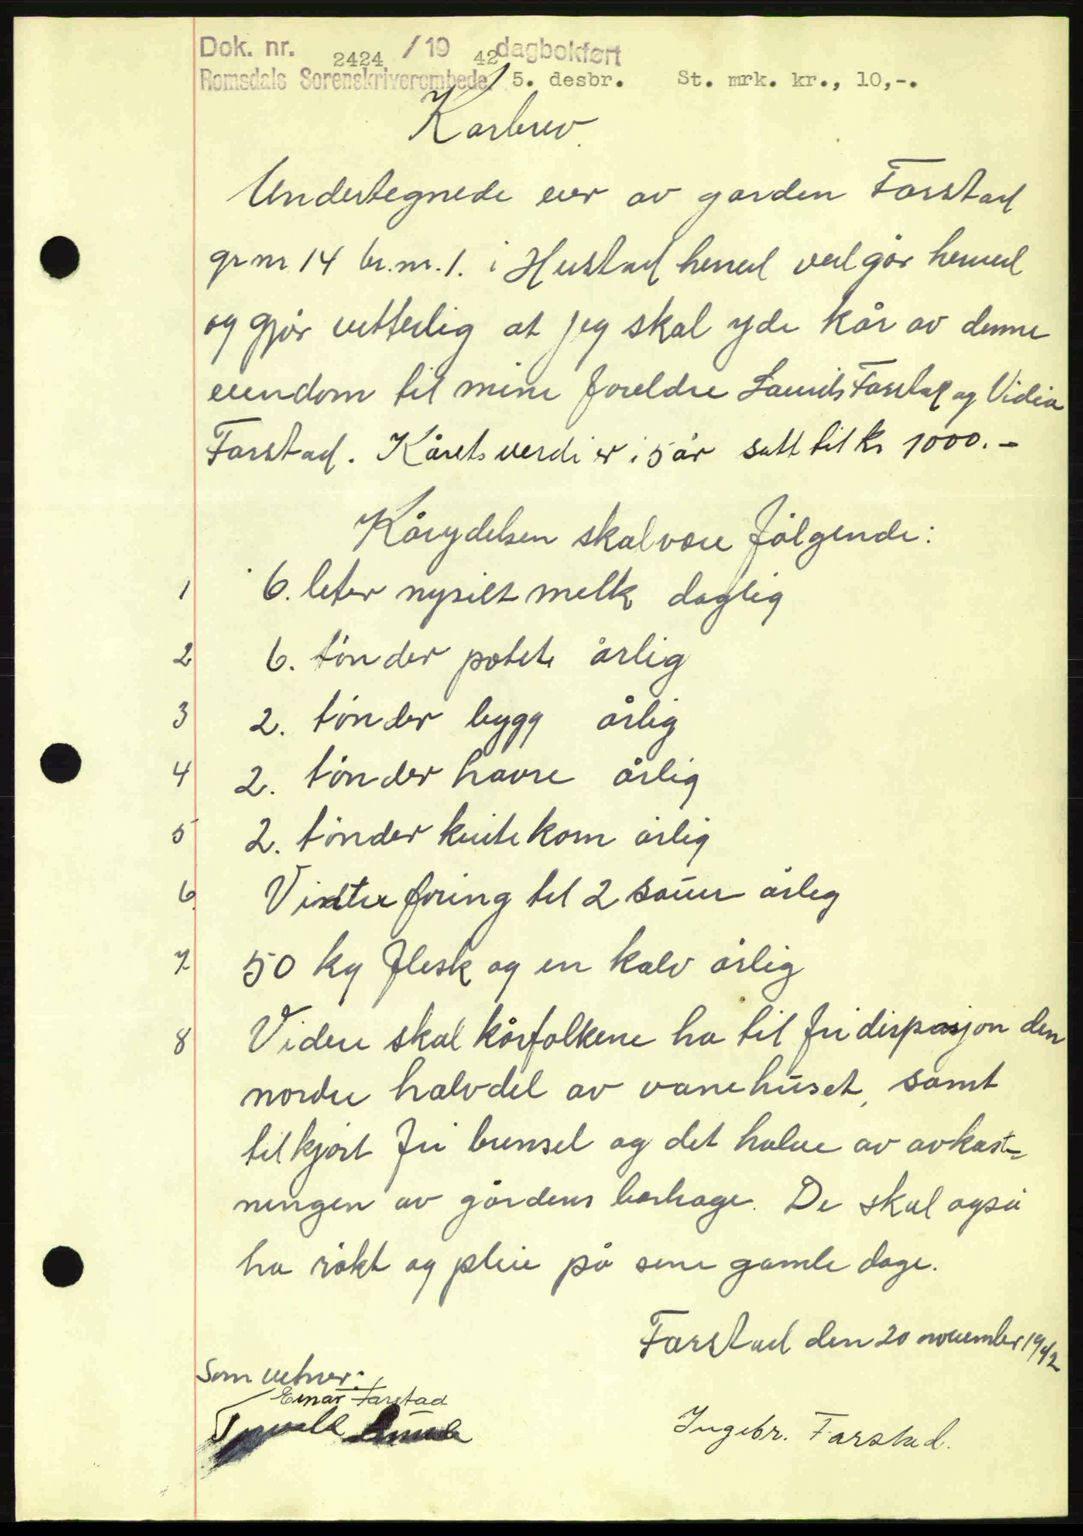 Dok. nr. 2424 /19 42 dagbokført
Romsdals Sorenskriverembede 5. desbr. St. mrk. kr., 10,-.
Karbrev.
Undertegnede eier av garden Farstad
gr nr 14 br. nr. 1. i Hustad hered vedgår herved
og gjør vitterlig at jeg skal yde kår av denne
eiendom til mine foreldre Laurits Farstad og Vidia
Farstad. Kårets verdi er i 5 år satt til kr 1000.-
Kårydelsen skal være følgende:
1 6. liter nysilt melk daglig
2 6. tønder potet årlig
3 2. tønder bygg årlig
4 2. tønder havre årlig
5 2. tønder kvitekorn årlig
6. Vinterforing til 2 sauer årleg
7 50 kg flesk og en kalv årlig
8 Videre skal kårfolkene ha til fri disposjon den
nordre halvdel av vånehuset, samt
tilkjørt fri brensel og det halve av avkast-
ningen av gårdens bærhage. De skal også
ha røkt og pleie på sine gamle dage.
Farstad den 20 november 1942
Som vitner:
Einar Farstad
Ingebr. Farstad.